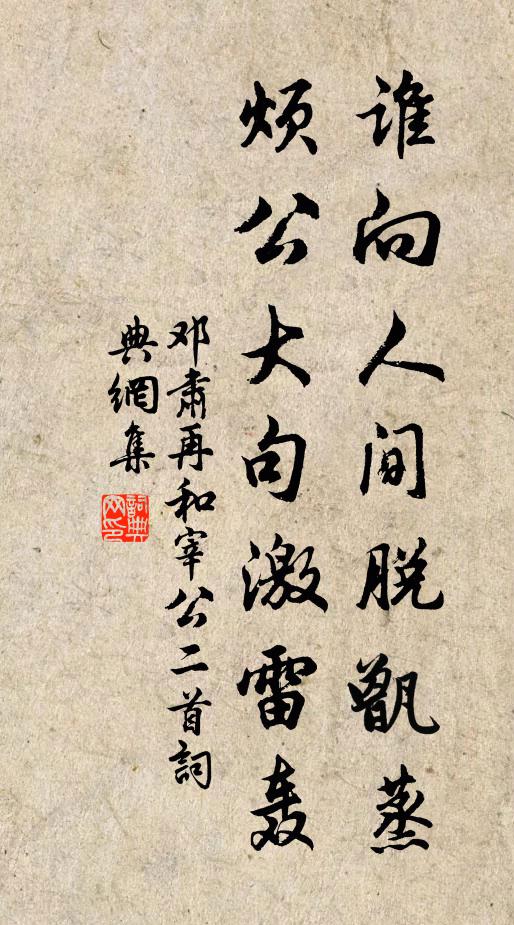 谁向人间脱甑蒸
烦公大句激雷轰
邓肃再和宰公二首詞
典網集
詞典網印